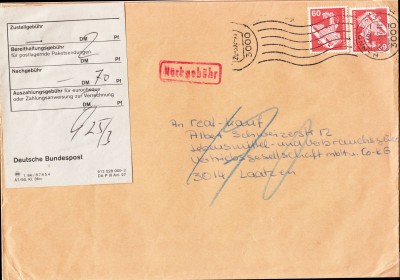 Zustellgebühr
DM Pf
Bereithaltungsgebühr
für postlagernde Paketsendungen
DM Pf
Nachgebühr
— 70
DM Pf
Auszahlungsgebühr für eurocheque
oder Zahlungsanweisung zur Verrechnung
DM Pf
Deutsche Bundespost
Nachgebühr
60
3000
3000
An real-kauf
Albert Schweizerstr 12
Lebensmittel- und Verbrauchsgüter
Vertriebsgesellschaft mbH u. Co-KG
3014 Laatzen